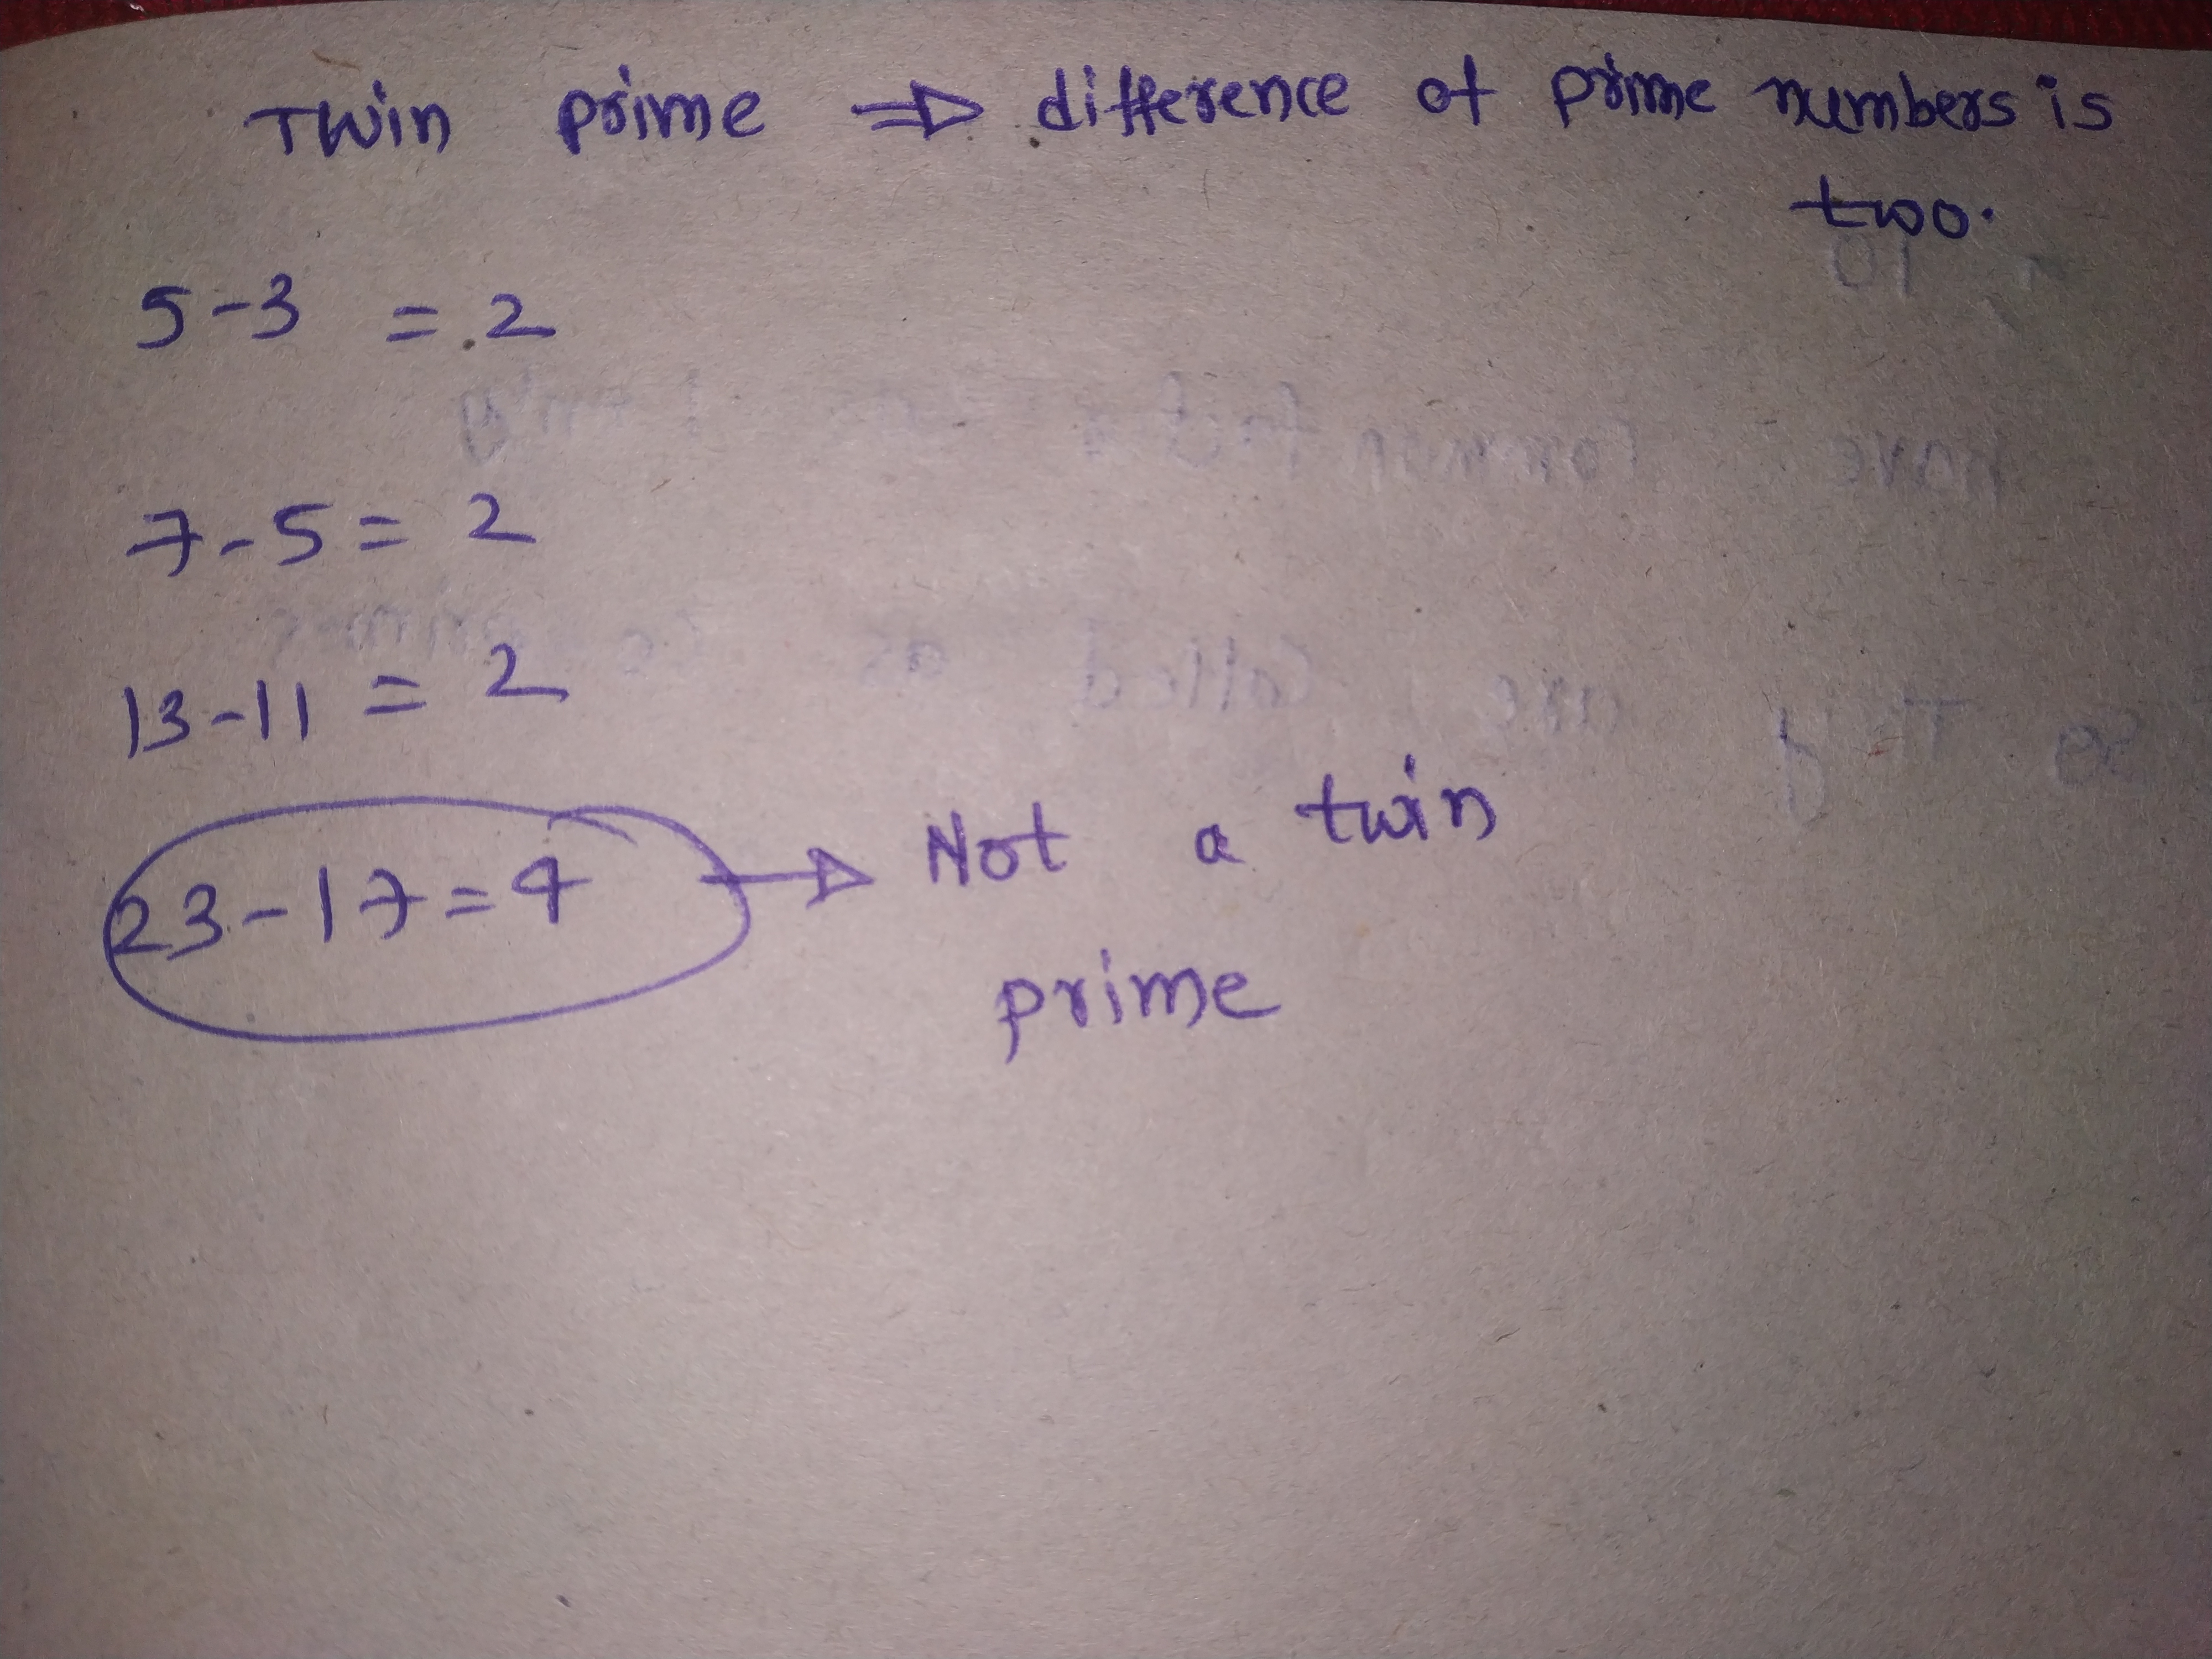 Twin prime ⇒ difference of prime numbers is
two.
5-3 = 2
7-5 = 2
13-11 = 2
23-17=4 → Not a twin
prime